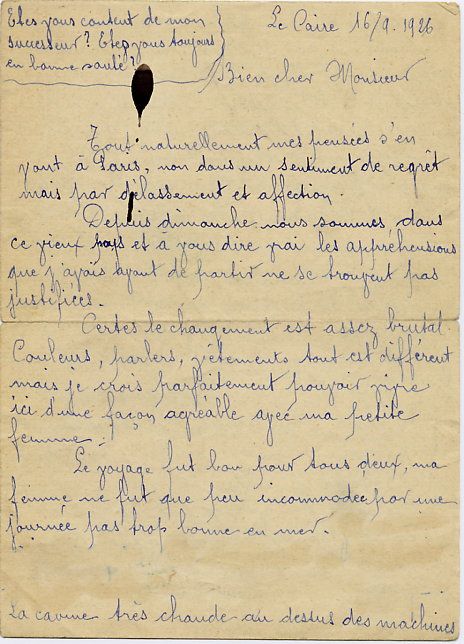 Etes vous content de mon
successeur? Etes vous toujours
en bonne santé?
Le Caire 16/9.1926
Bien cher Monsieur
Tout naturellement mes pensées s'en
vont à Paris, non dans un sentiment de regrêt
mais par délassement et affection.
Depuis dimanche nous sommes dans
ce vieux pays et à vous dire vrai les appréhensions
que j'avais avant de partir ne se trouvent pas
justifiées.
Certes le changement est assez brutal.
Couleurs, parlers, vêtements tout est différent
mais je crois parfaitement pouvoir vivre
ici d'une façon agréable avec ma petite
femme.
Le voyage fut bon pour tous deux, ma
femme ne fut que peu incommodée par une
journée pas trop bonne en mer.
La cavine très chaude au dessus des machines